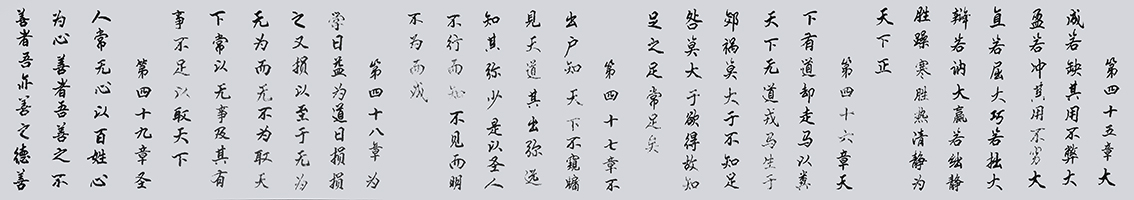 第四十五章大
成若缺其用不弊大
盈若冲其用不穷大
直若屈大巧若拙大
辩若讷大赢若绌静
胜躁寒胜热清静为
天下正
第四十六章天
下有道却走马以粪
天下无道戎马生于
郊祸莫大于不知足
咎莫大于欲得故知
足之足常足矣
第四十七章不
出户知天下不窥牖
见天道其出弥远
知其弥少是以圣人
不行而知不见而明
不为而成
第四十八章为
学日益为道日损损
之又损以至于无为
无为而无不为取天
下常以无事及其有
事不足以取天下
第四十九章圣
人常无心以百姓心
为心善者吾善之不
善者吾亦善之德善